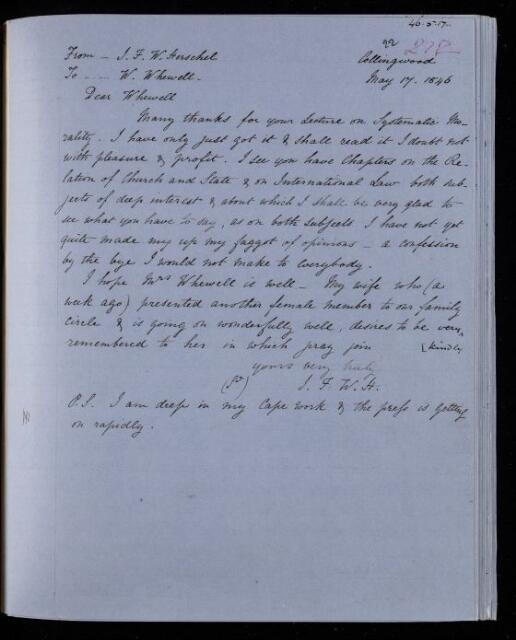 46.5.17.
22
278
From - J. F. W. Herschel
Collingwood
To - - W. Whewell.
May 17. 1846
Dear Whewell
Many thanks for your Lecture on Systematic Mo-
rality. I have only just got it & shall read it I doubt not
with pleasure & profit. I see you have Chapters on the Re-
lation of Church and State & on International Law both sub-
jects of deep interest & about which I shall be very glad to
see what you have to say, as on both subjects I have not yet
quite made my up my faggot of opinions - a confession
by the bye I would not make to everybody.
I hope Mrs Whewell is well - My wife who (a
week ago) presented another female member to our family
circle & is going on wonderfully well, desires to be very
remembered to her in which pray join [kindly
yours very truly
(Sd) J. F. W. H.
P.S. I am deep in my Cape work & the press is getting
on rapidly.